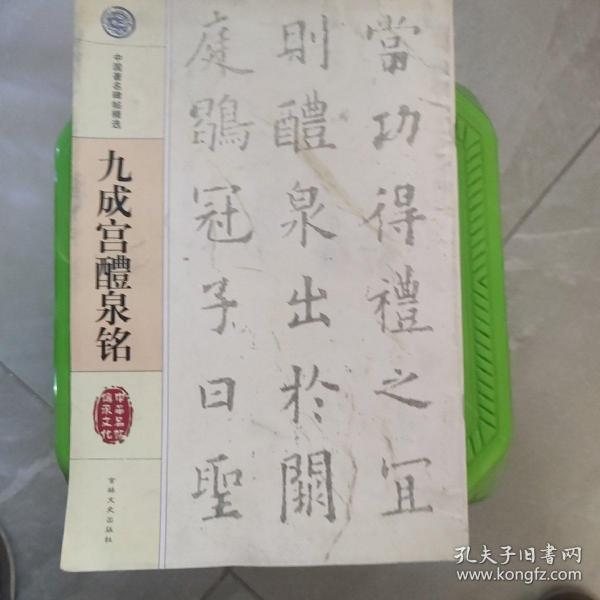 中国著名碑帖精选
九成宫醴泉铭
吉林文史出版社
當功得禮之宜
則醴泉出於闕
庭鶡冠子曰聖
孔夫子旧书网
www.kongfz.com